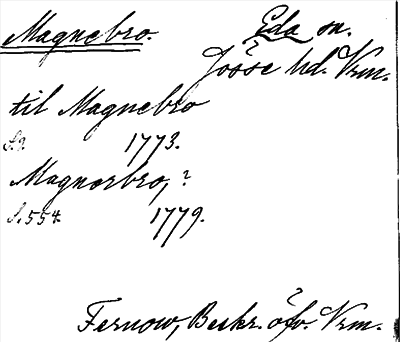 Magnebro. Eda sn.
Jösse hd. Vrm.
til Magnebro
S.9. 1773.
Magnerbro, ?
S. 554. 1779.
Fernow, Beskr. öfv. Vrm.